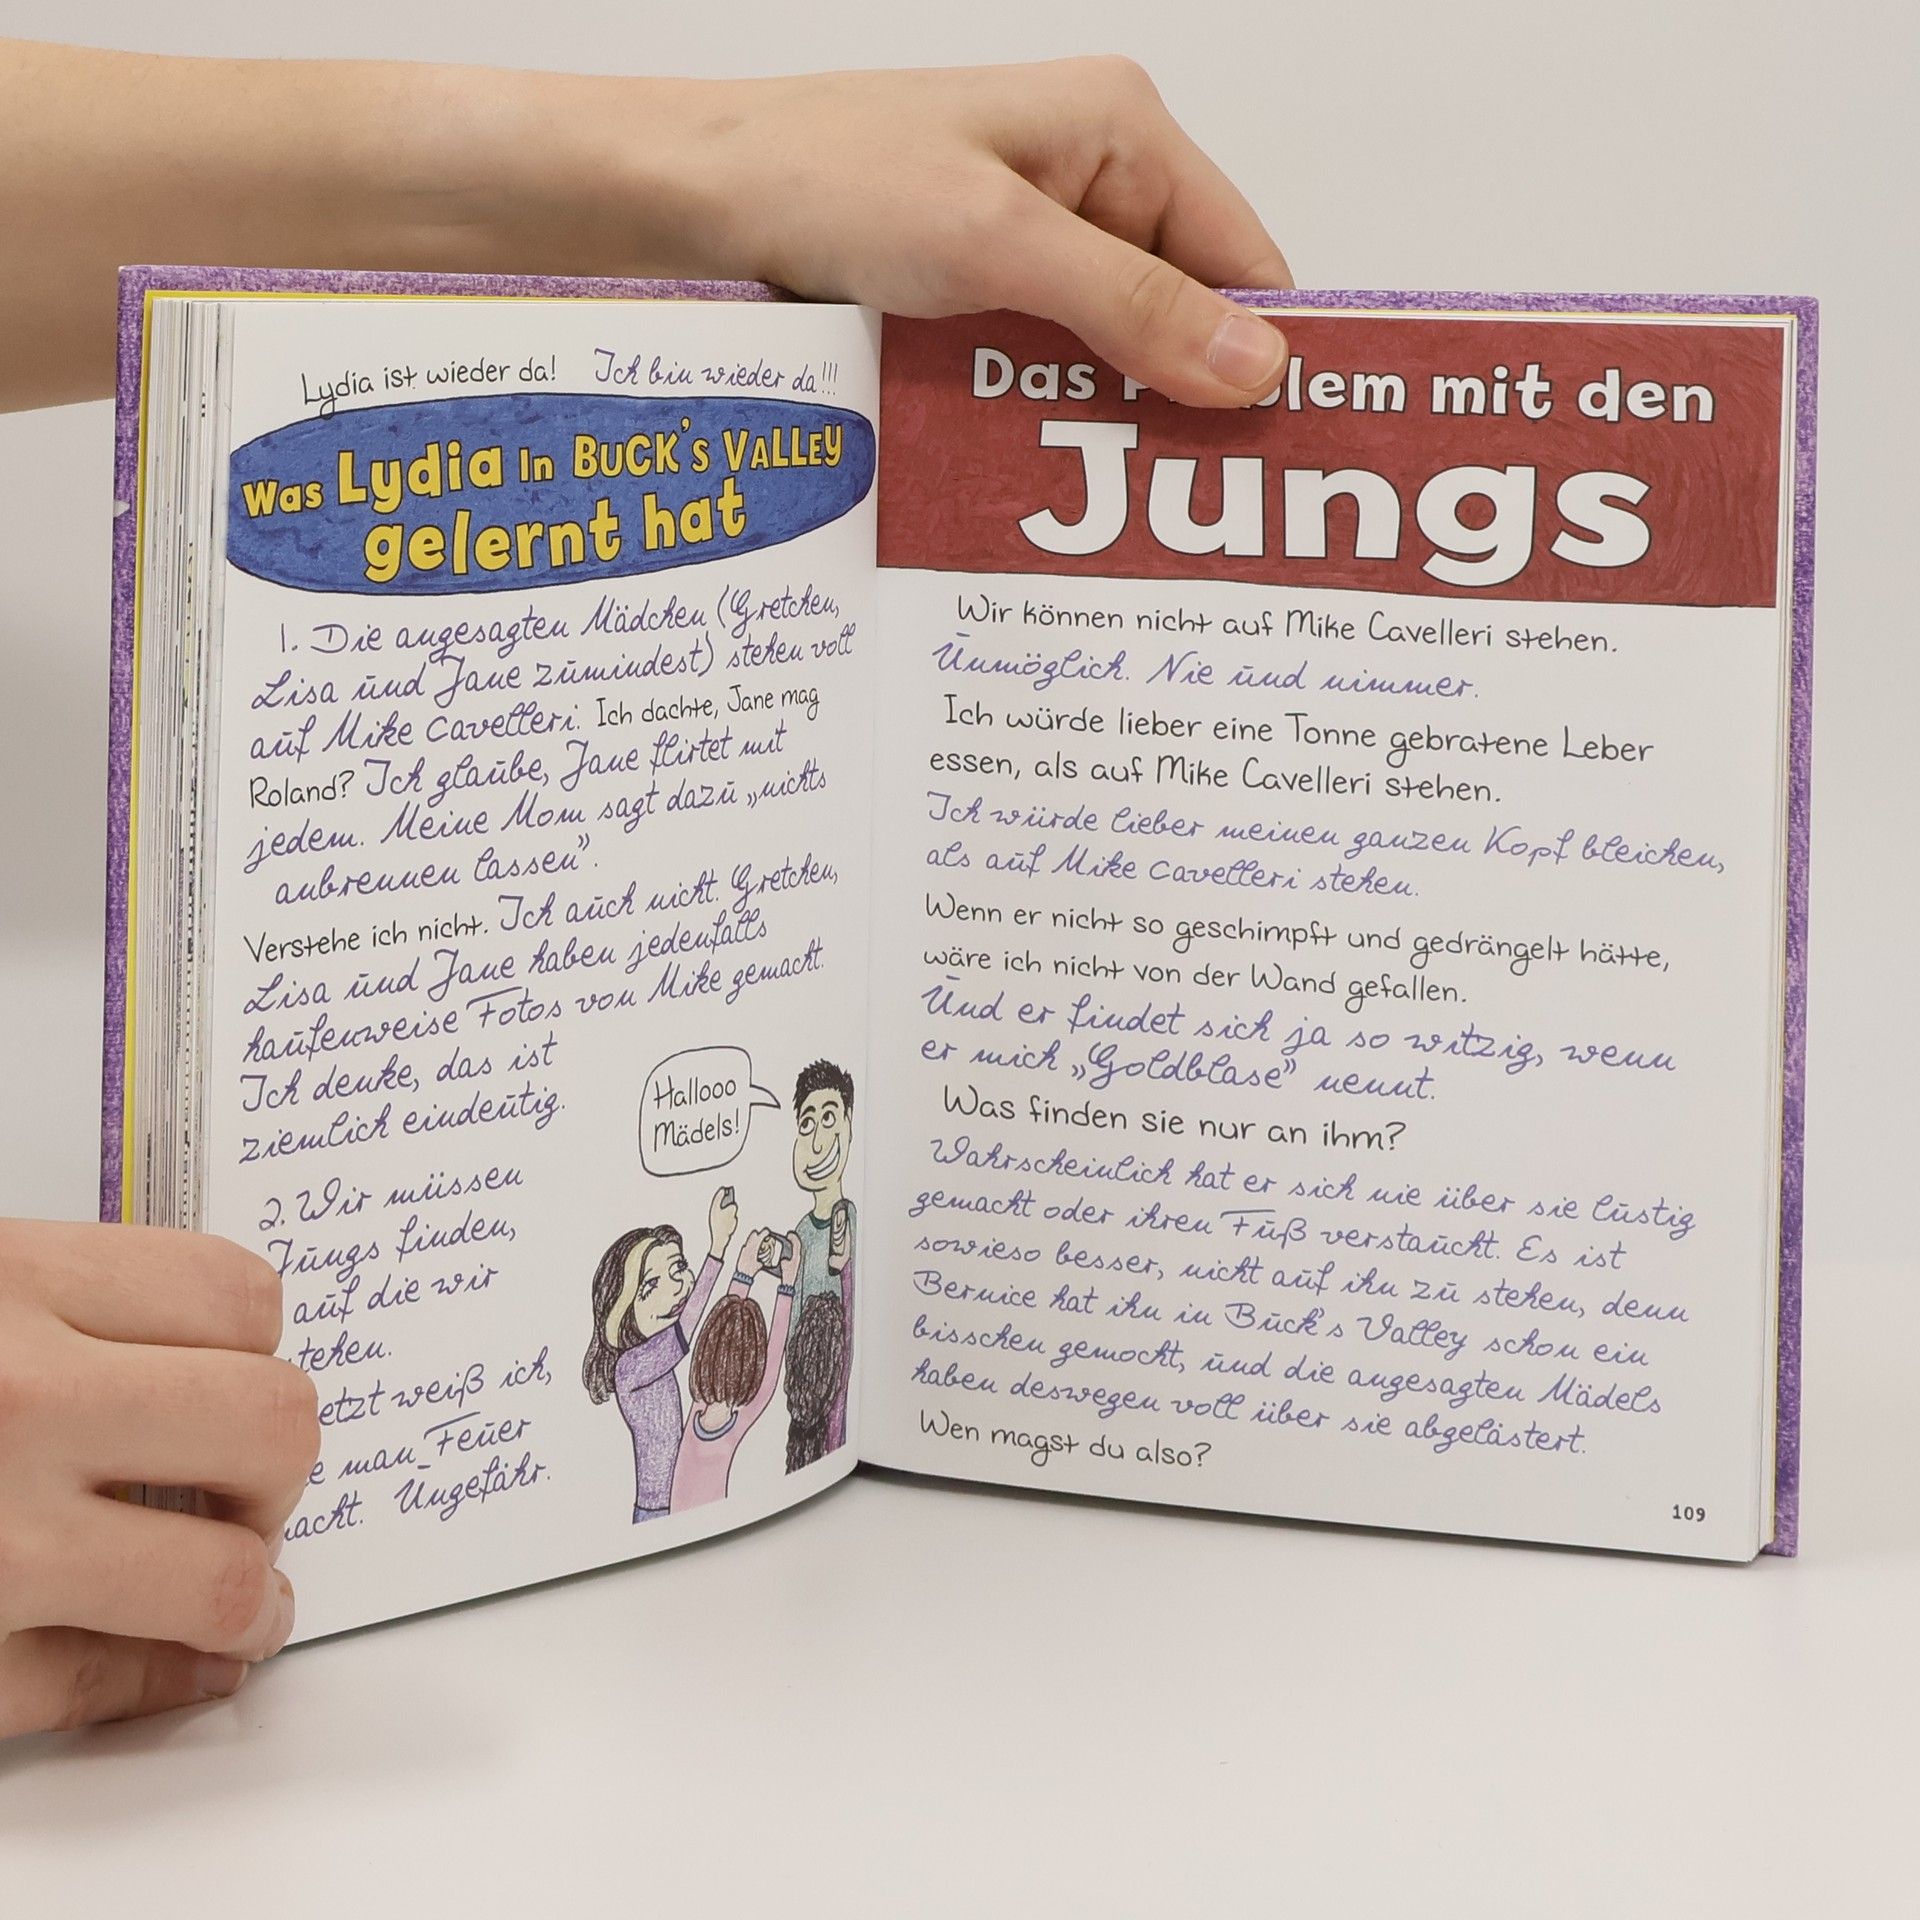 Lydia ist wieder da! Ich bin wieder da!!!
Was Lydia In BUCK'S VALLEY
gelernt hat
1. Die angesagten Mädchen (Gretchen,
Lisa und Jane zumindest) stehen voll
auf Mike Cavelleri. Ich dachte, Jane mag
Roland? Ich glaube, Jane flirtet mit
jedem. Meine Mom sagt dazu „nichts
anbrennen lassen”.
Verstehe ich nicht. Ich auch nicht. Gretchen,
Lisa und Jane haben jedenfalls
haufenweise Fotos von Mike gemacht.
Ich denke, das ist
ziemlich eindeutig.
Hallooo
Mädels!
2. Wir müssen
Jungs finden,
auf die wir
tehen.
etzt weiß ich,
e man Feuer
acht. Ungefähr.
Das lem mit den
Jungs
Wir können nicht auf Mike Cavelleri stehen.
Unmöglich. Nie und nimmer.
Ich würde lieber eine Tonne gebratene Leber
essen, als auf Mike Cavelleri stehen.
Ich würde lieber meinen ganzen Kopf bleichen,
als auf Mike Cavelleri stehen.
Wenn er nicht so geschimpft und gedrängelt hätte,
wäre ich nicht von der Wand gefallen.
Und er findet sich ja so witzig, wenn
er mich „Goldblase” nennt.
Was finden sie nur an ihm?
Wahrscheinlich hat er sich nie über sie lustig
gemacht oder ihren Fuß verstaucht. Es ist
sowieso besser, nicht auf ihn zu stehen, denn
Bernice hat ihn in Buck's Valley schon ein
bisschen gemocht, und die angesagten Mädels
haben deswegen voll über sie abgelästert.
Wen magst du also?
109